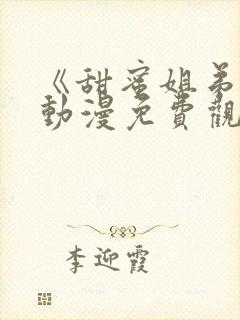 《甜蜜姐弟
動漫免費觀
李迎霞